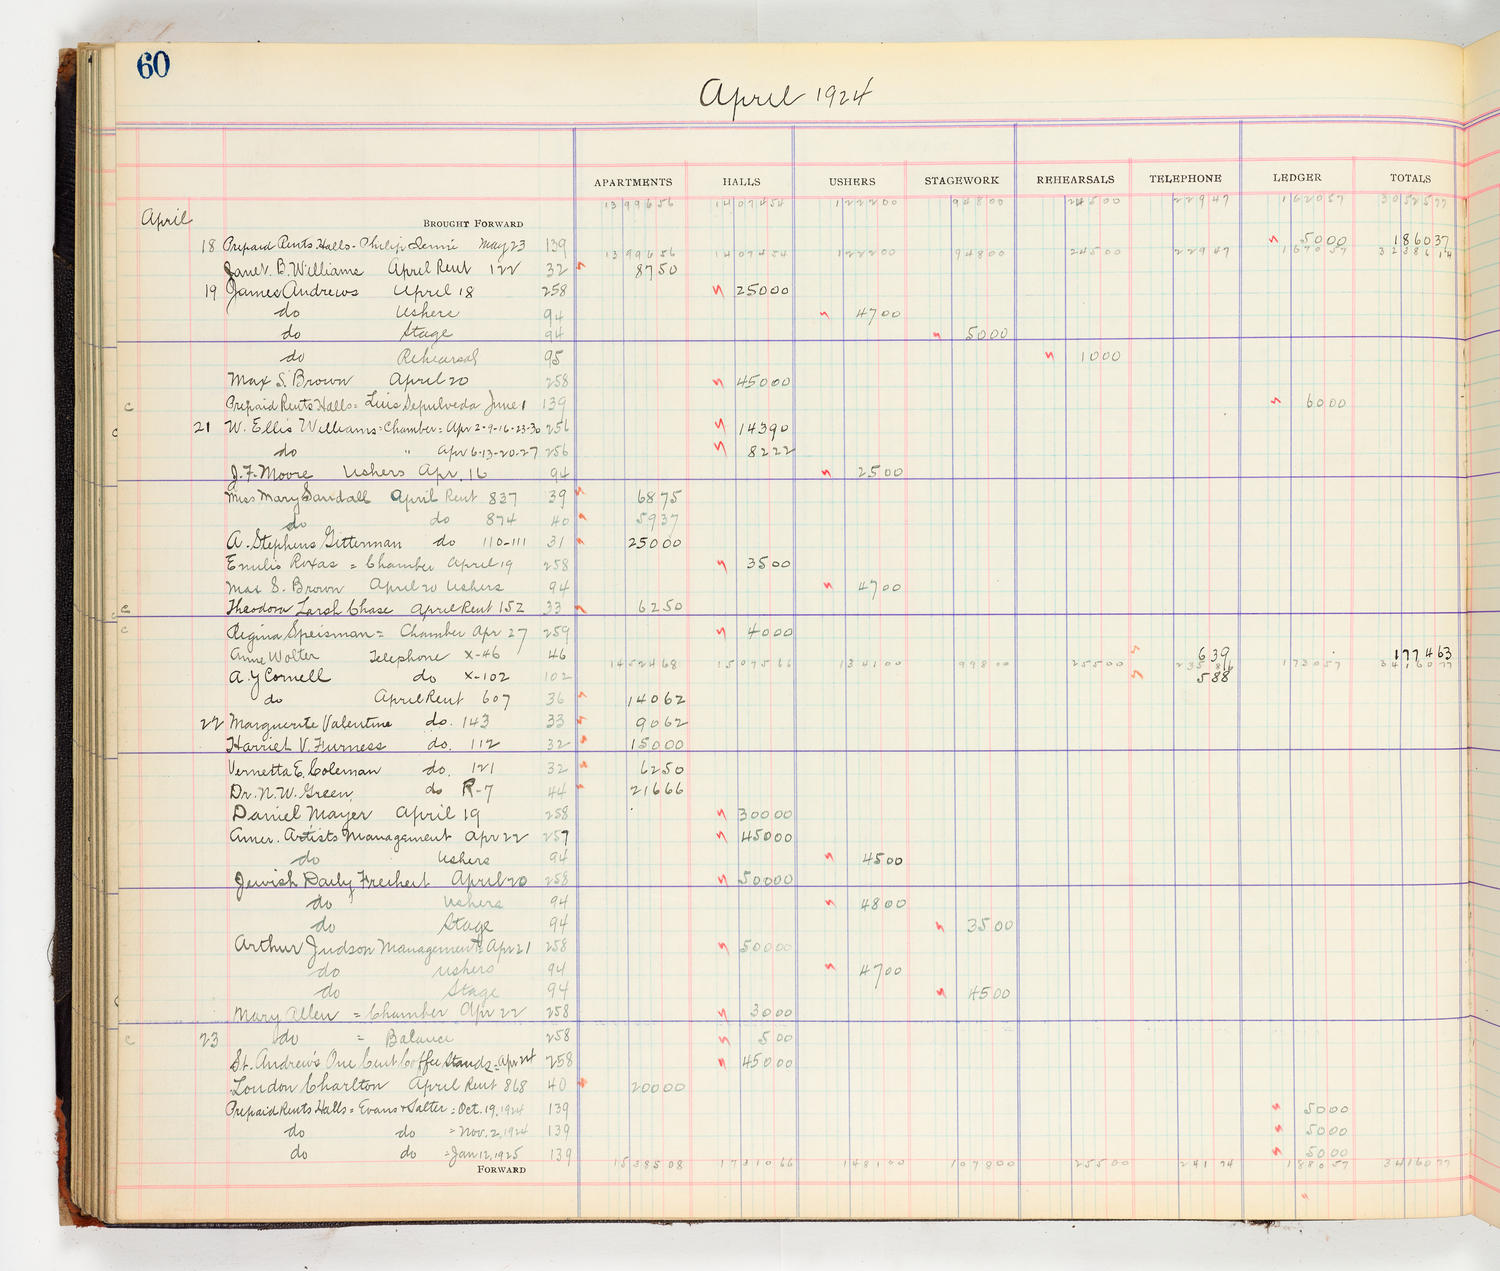 60
April 1924
APARTMENTS HALLS USHERS STAGEWORK REHEARSALS TELEPHONE LEDGER TOTALS
1399656 1407454 122200 94800 24500 22947 162057 3052577
April BROUGHT FORWARD
18 Prepaid Rents Halls - Philip May 23 139 5000 186037
1399656 1407454 122200 94800 24500 22947 167057
Janet B. Williams April Rent 122 32 8750
19 James Andrews April 18 258 25000
do Ushers 94 4700
do Stage 94 5000
do Rehearsal 95 1000
Max S. Brown April 20 258 45000
c Prepaid Rents Halls = Luis Sepulveda June 1 139 6000
c 21 W. Ellis Williams = Chamber = Apr 2-9-16-23-30 256 14390
do " Apr 6-13-20-27 256 8222
J. F. Moore Ushers Apr. 16 94 2500
Miss Mary Sandall April Rent 837 39 6875
do do 874 40 5937
A. Stephens Gitterman do 110-111 31 25000
Emilio Roxas = Chamber April 19 258 3500
Max S. Brown April 20 Ushers 94 4700
c Theodora Larsh Chase April Rent 152 33 6250
c Regina Speisman = Chamber Apr 27 259 4000
Anne Wolter Telephone X-46 46 639 177463
1452468 1507566 134100 99800 25500 173057
A. Y Cornell do X-102 102 588
do April Rent 607 36 14062
22 Marguerite Valentine do. 143 33 9062
Harriet V. Furness do. 112 32 15000
Vernetta E. Coleman do. 121 32 6250
Dr. N. W. Green do R-7 44 21666
Daniel Mayer April 19 258 30000
Amer. Artists Management Apr 22 257 45000
do Ushers 94 4500
Jewish Daily Freiheit April 20 258 50000
do Ushers 94 4800
do Stage 94 3500
Arthur Judson Management = Apr 21 258 50000
do Ushers 94 4700
do Stage 94 4500
Mary Allen = Chamber Apr 22 258 3000
c 23 do = Balance 258 500
St. Andrew's One Cent Coffee Stands = Apr 24 258 45000
London Charlton April Rent 868 40 20000
Prepaid Rents Halls = Evans & Salter = Oct. 19, 1924 139 5000
do do = Nov. 2, 1924 139 5000
do do = Jan 12, 1925 139 5000
FORWARD 1538508 1731066 148100 107800 25500 24174 188057 3416077